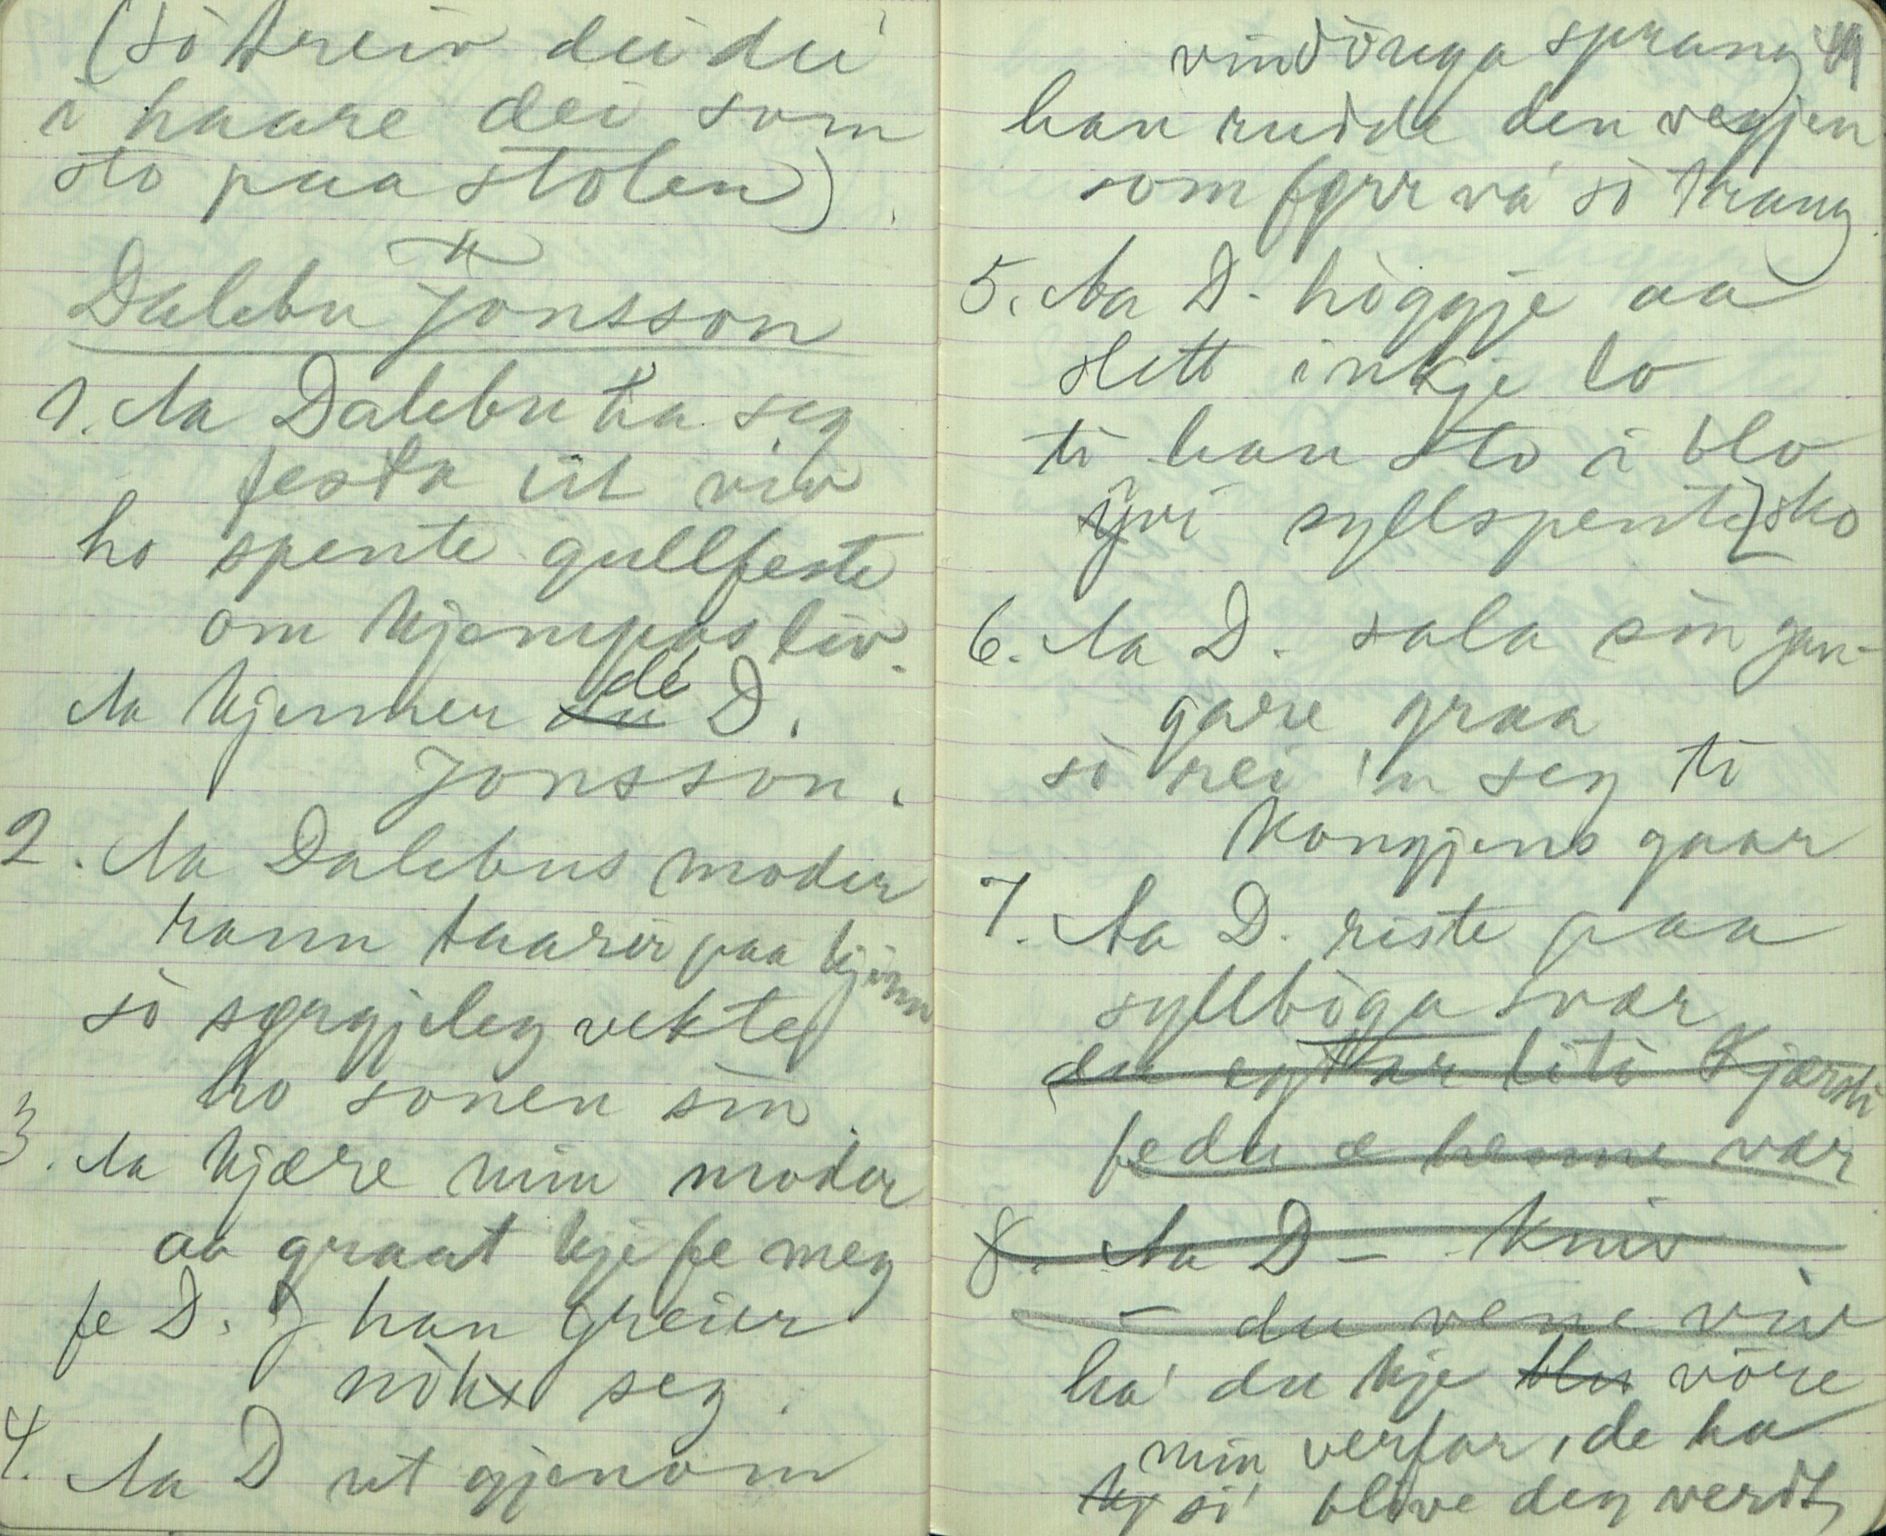 (sò treiv dei dei
i haare dei som
sto paa stolen)
Dalebu Jonsson
1. Aa Dalebu ha seg
festa it viv
ho spente gullfeste
om kjempas liv.
Aa kjenner dé D.
Jonsson.
2. Aa Dalebus moder
rann taarir paa kjinn
sò sørgjeleg vekte
ho sonen sin.
3. Aa kjære min moder
aa graat kje fe meg
fe D. J han greier
nòk seg.
4. Aa D ut gjenom
vindòuga sprang 49
han rudde den vegjen
som fyrr va' sò trang
5. Aa D. höggje aa
slett inkje lo
ti han sto i blo
ivi syllspente sko
6. Aa D. sala sin gan-
gare graa
sò rei 'n seg ti
kongjens gaar
7. Aa D. riste paa
syllbòga svær
du eftar liti Kjærsti
fedu æ henne vær
8. Aa D - kniv
- du vene viv
ha' du kje blu vòre
min verfar, de ha
kj si' blive deg verdt